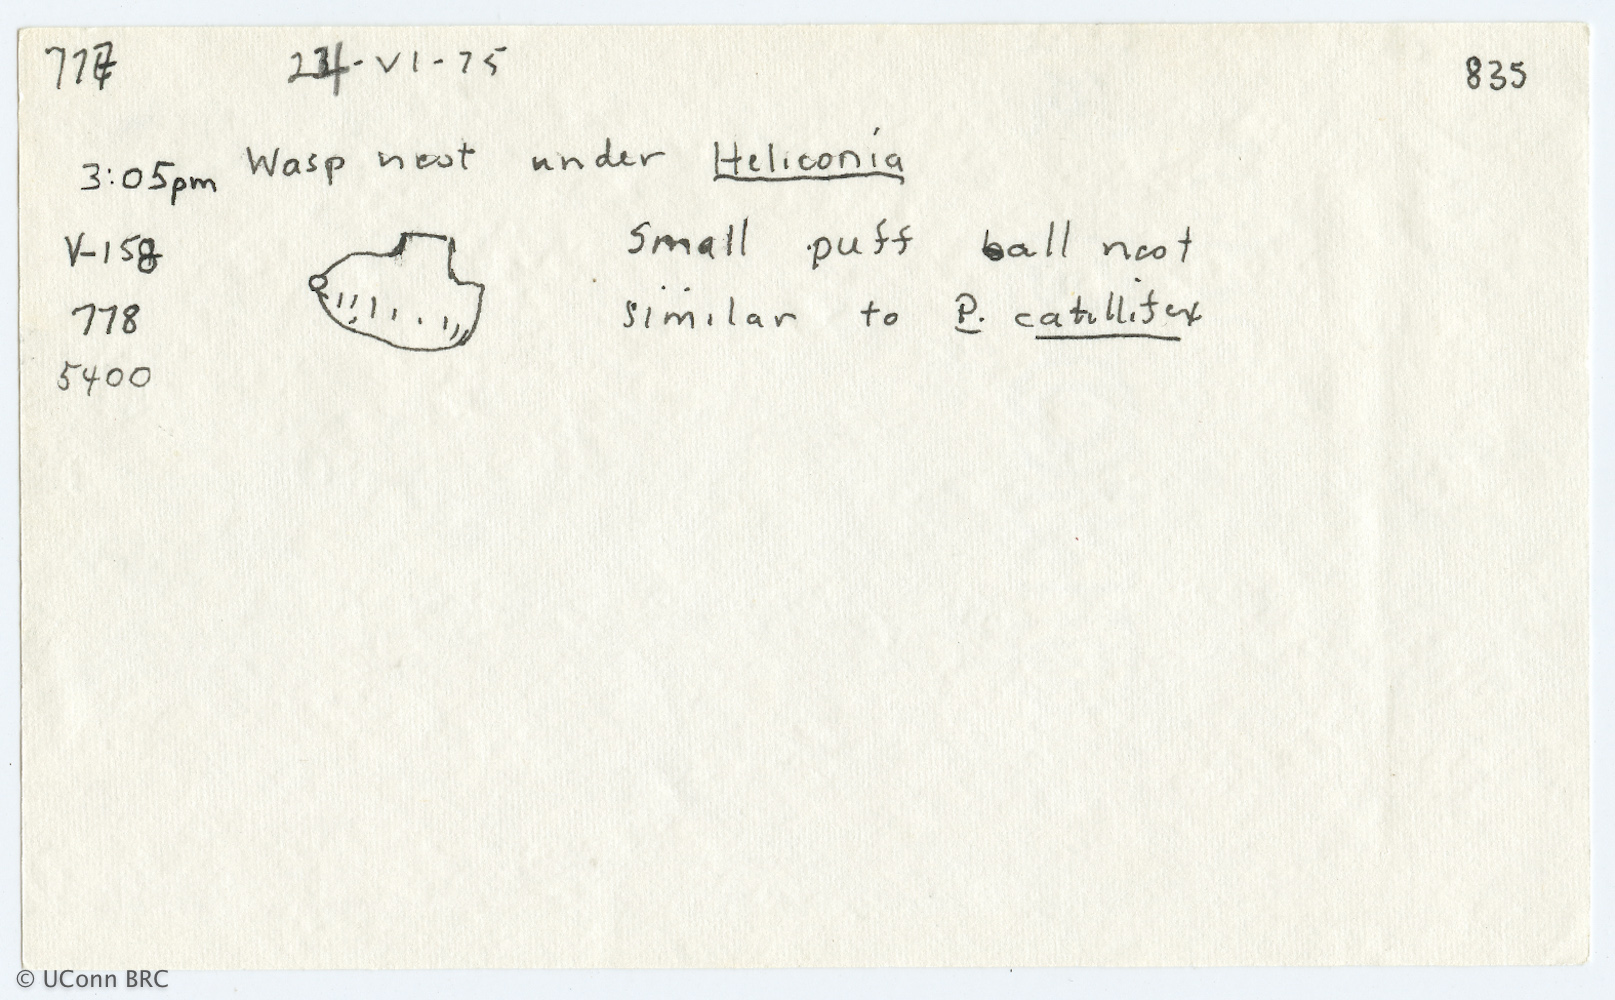 24-VI-75 835
3:05pm Wasp nest under Heliconia
V-158 Small puff ball nest
778 similar to P. catillifex
5400
© UConn BRC